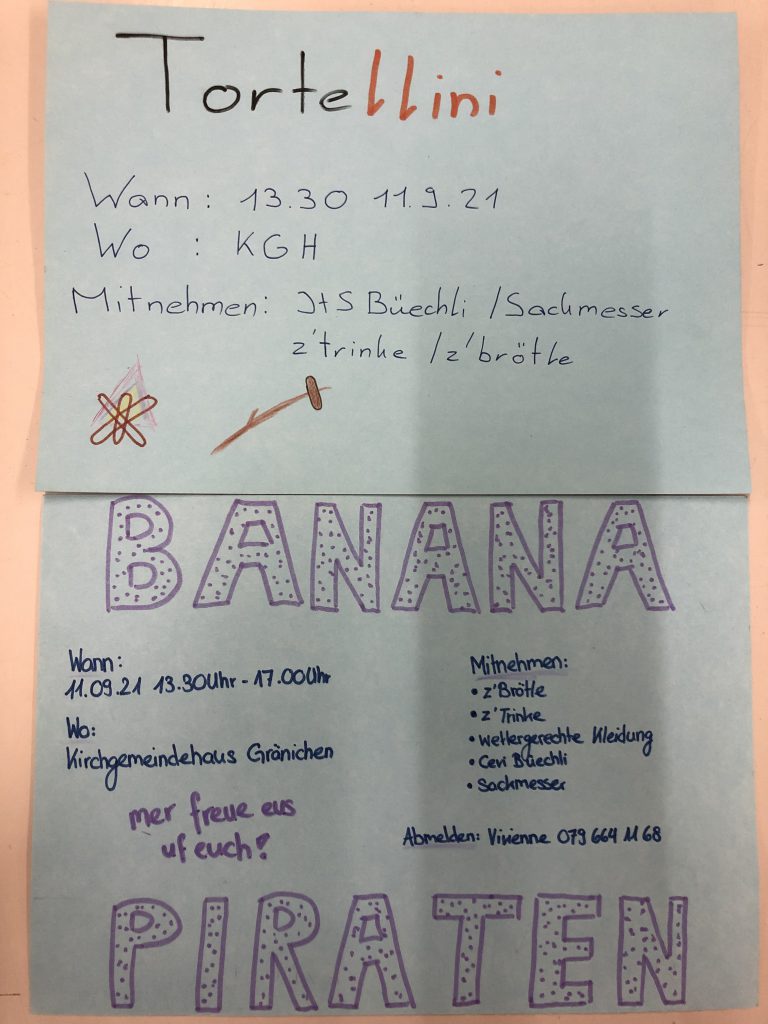 Tortellini
Wann: 13.30 11.9.21
Wo : KGH
Mitnehmen: J+S Büechli /Sackmesser
z'trinke /z'brötle
BANANA
Wann:
11.09.21 13.30Uhr - 17.00Uhr
Wo:
Kirchgemeindehaus Gränichen
mer freue eus
uf euch!
Mitnehmen:
• z'Brötle
• z'Trinke
• wettergerechte Kleidung
• Cevi Büechli
• Sackmesser
Abmelden: Vivienne 079 664 11 68
PIRATEN